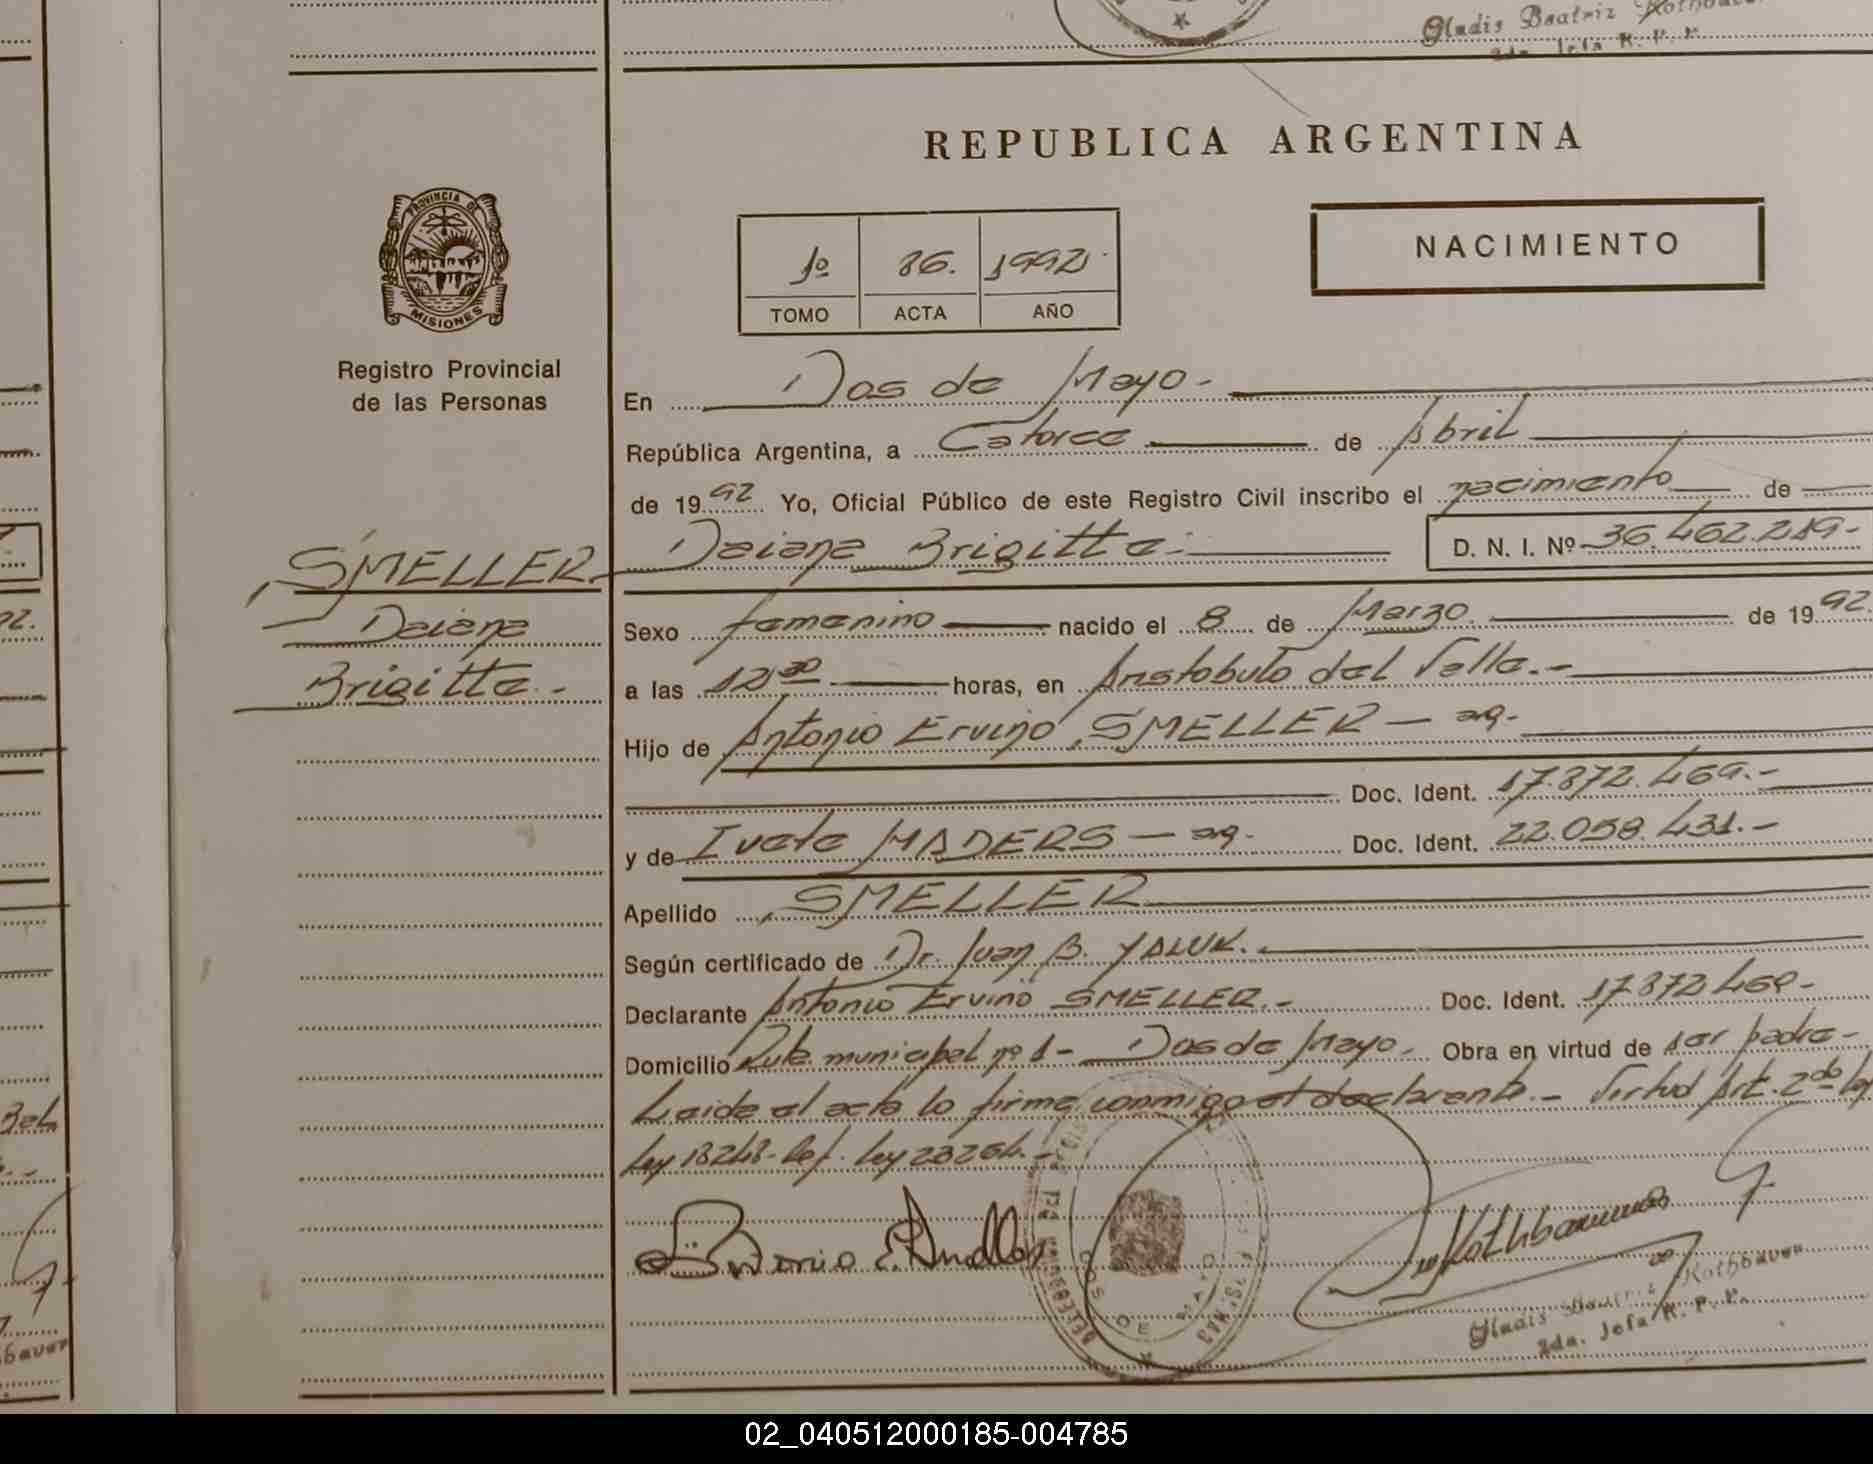 Gladis Beatriz Rothbauer
2da. Jefa R. P. P.
REPUBLICA ARGENTINA
PROVINCIA DE
MISIONES
Registro Provincial
de las Personas
1º 86. 1992.
TOMO ACTA AÑO
NACIMIENTO
En Dos de Mayo.-
República Argentina, a Catorce de Abril
de 1992 Yo, Oficial Público de este Registro Civil inscribo el nacimiento de
SMELLER Daiana Brigitte.- D. N. I. Nº 36.462.219-
Daiana
Brigitte.-
Sexo femenino nacido el 8 de Marzo. de 1992
a las 12 30 horas, en Aristobulo del Valle.-
Hijo de Antonio Ervino SMELLER — arg.-
Doc. Ident. 17.872.469.-
y de Ivete MADERS — arg.- Doc. Ident. 22.058.431.-
Apellido SMELLER
Según certificado de Dr. Juan B. YALUK.
Declarante Antonio Ervino SMELLER.- Doc. Ident. 17.872.469-
Domicilio Ruta municipal nº 1- Dos de Mayo. Obra en virtud de ser padre-
Leida el acta lo firma conmigo el declarante.- Virtud Art. 2do
Ley 18248- Ref. Ley 23264.-
Antonio E. Smeller
DOS DE MAYO
Gladis Beatriz Rothbauer
2da. Jefa R. P. P.
02_040512000185-004785